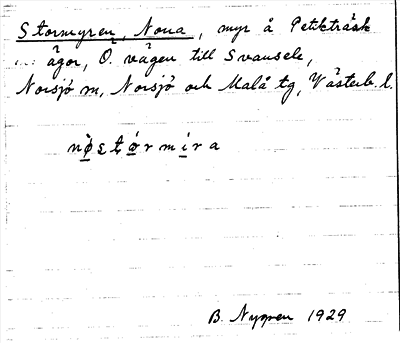 Stormyren, Norra, myr å Petikträsk
ägor, Ö. vägen till Svansele,
Norsjö sn, Norsjö och Malå tg, Västerb. l.
nø̱ɛtø̱rmi̱ra
B. Nygren 1929